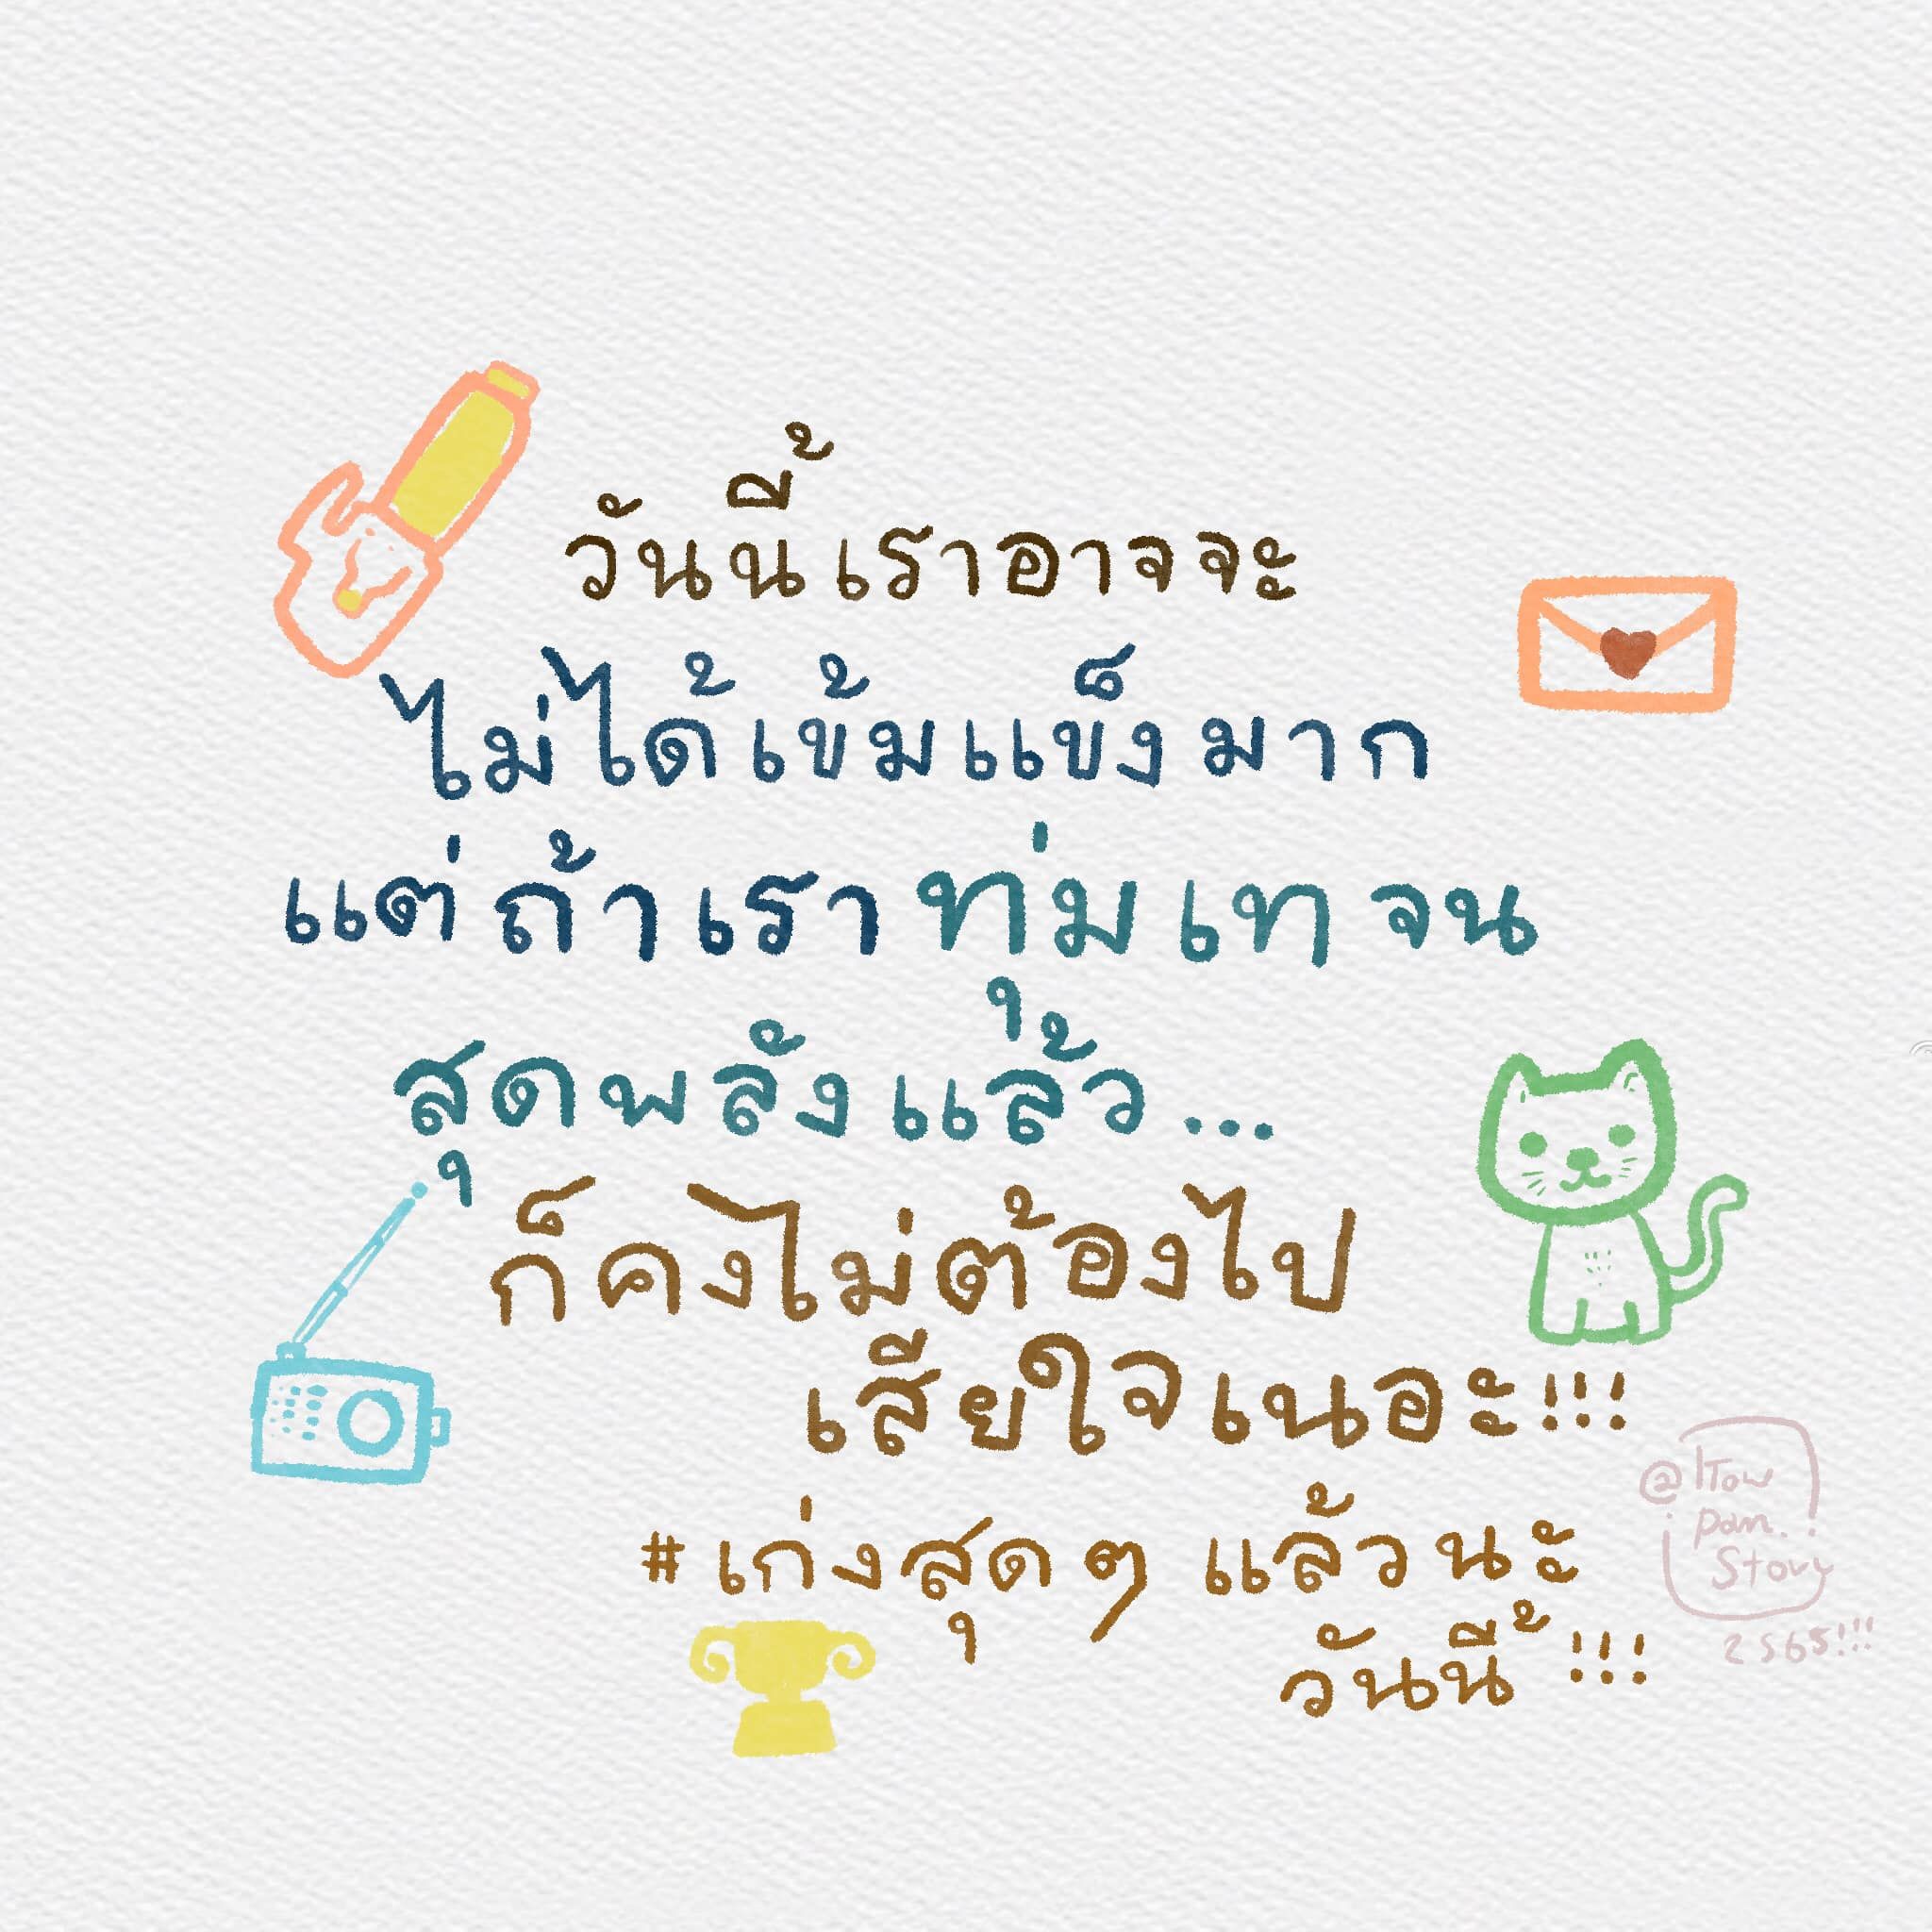 วันนี้เราอาจจะ
ไม่ได้เข้มแข็งมาก
แต่ถ้าเราทุ่มเทจน
สุดพลังแล้ว...
ก็คงไม่ต้องไป
เสียใจเนอะ!!!
#เก่งสุดๆ แล้วนะ
วันนี้!!!
pan.
Story
2565!!!